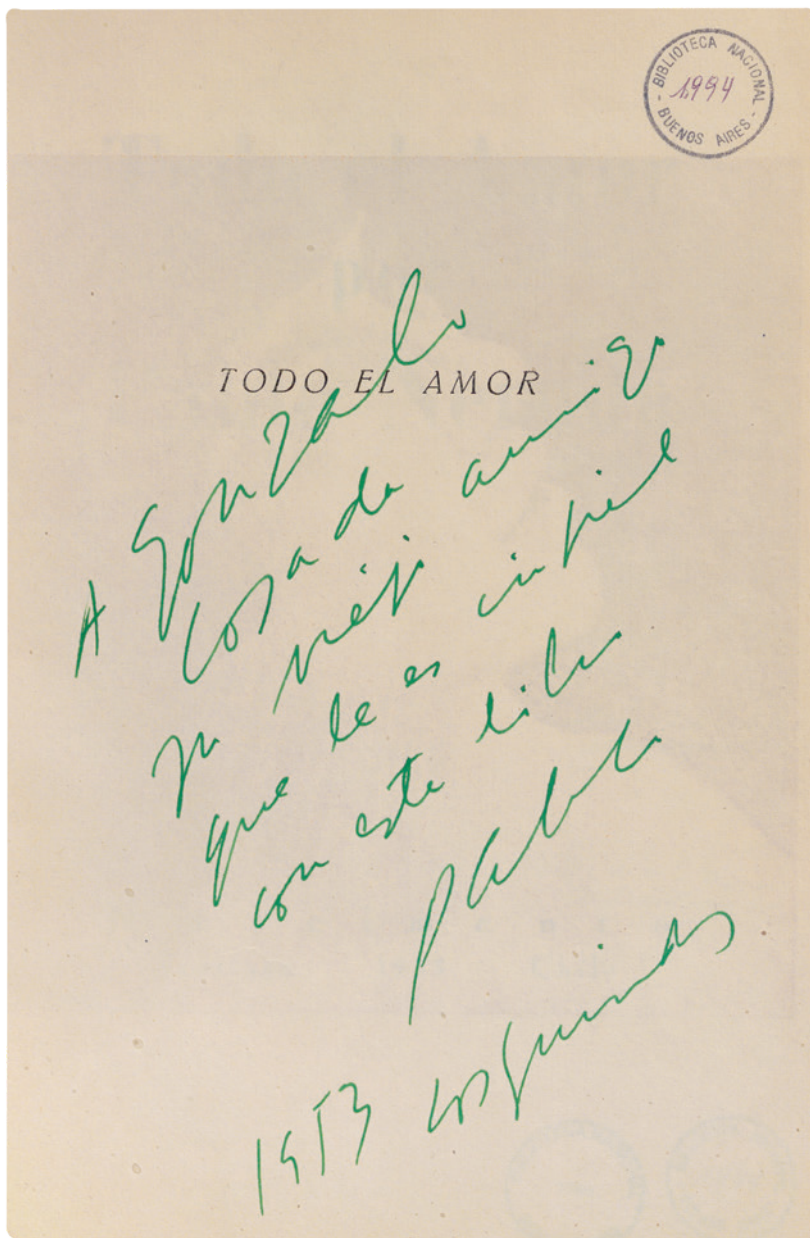 BIBLIOTECA NACIONAL
1994
- BUENOS AIRES -
TODO EL AMOR
A Gonzalo
Losada amigo
su viejo
que le es infiel
con este libro
Pablo
1953 Los Guindos